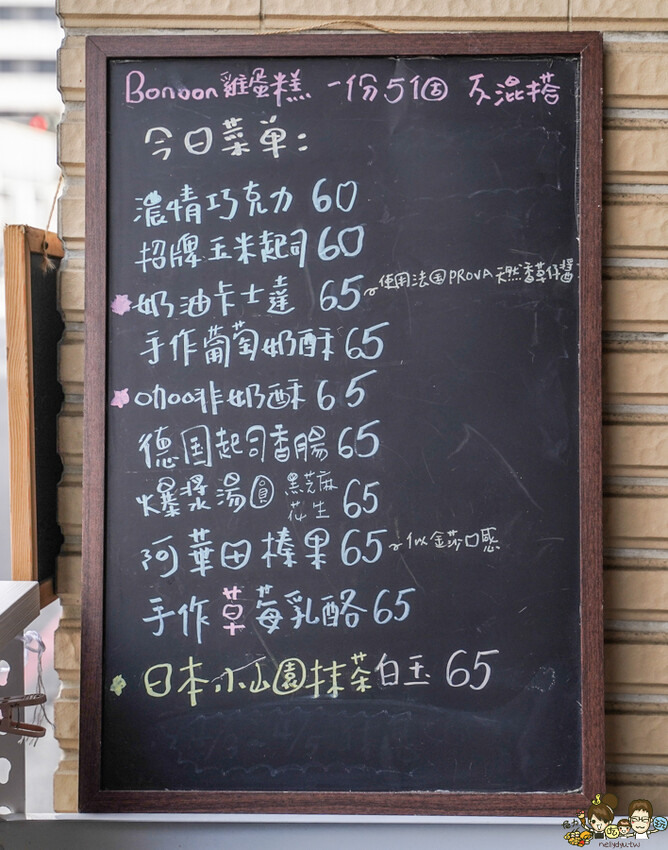 Bonbon 雞蛋糕 一份5個 不混搭
今日菜单:
濃情巧克力 60
招牌玉米起司 60
奶油卡士達 65 ~使用法国PROVA天然香草籽醬
手作葡萄奶酥 65
咖啡奶酥 65
德国起司香腸 65
爆漿湯圓 黑芝麻 花生 65
阿華田榛果 65 ~似金莎口感
手作草莓乳酪 65
日本小山園抹茶白玉 65
nellydyu.tw